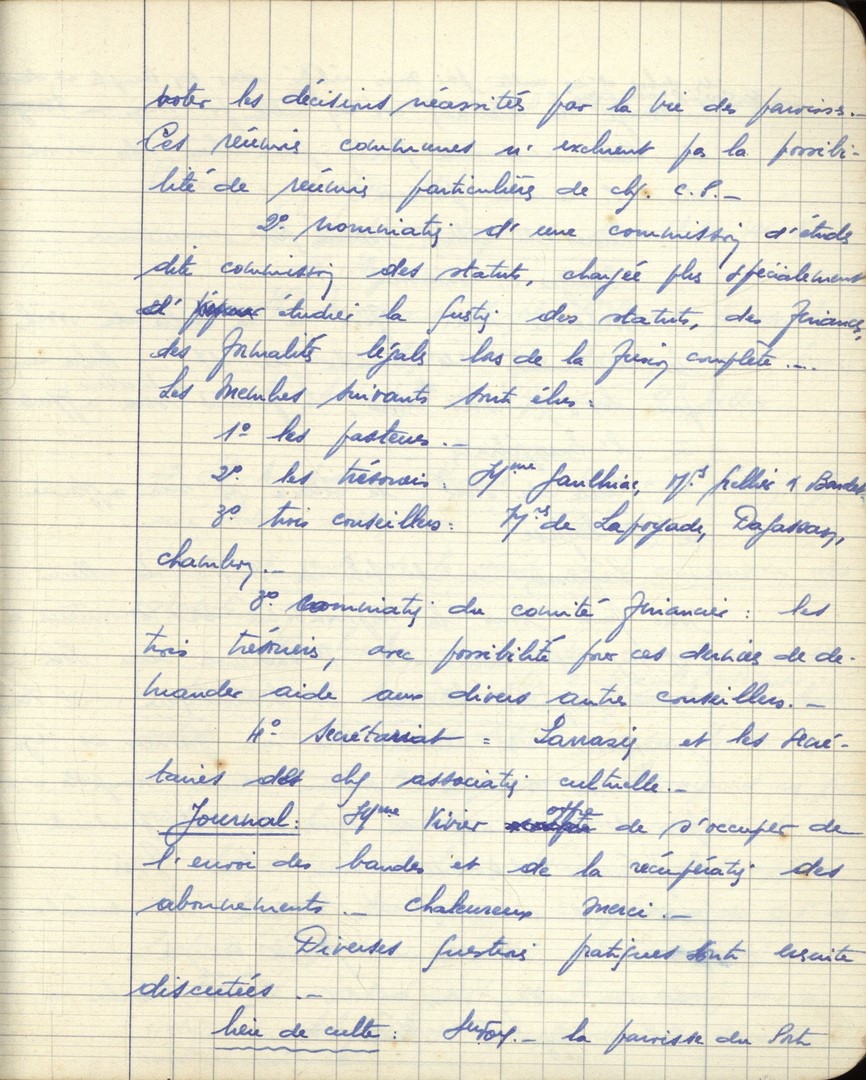 voter les décisions nécessités par la vie des paroisses.
Ces réunions communes n'excluent pas la possibi-
lité de réunions particulières de chq. C.P. -
2° nomination d'une commission d'étude
dite commission des statuts, chargée plus spécialement
d' étudier la question des statuts, des finances,
des formalités légales lors de la fusion complète ...
Les membres suivants sont élus :
1° les pasteurs. -
2° les trésoriers : Mme Gaulhiac, Mrs Pellier & Bardet
3° trois conseillers : Mrs de Lapoyade,
Chambon. -
3° nomination du comité financier : les
trois trésoriers, avec possibilité pour ces derniers de de-
mander aide aux divers autres conseillers. -
4° secrétariat = et les secré-
taires des chq association cultuelle. -
Journal : Mme Vivier offre de s'occuper de
l'envoi des bandes et de la récupération des
abonnements. - chaleureux merci. -
Diverses questions pratiques sont ensuite
discutées. -
lieu de culte : - la paroisse du Port